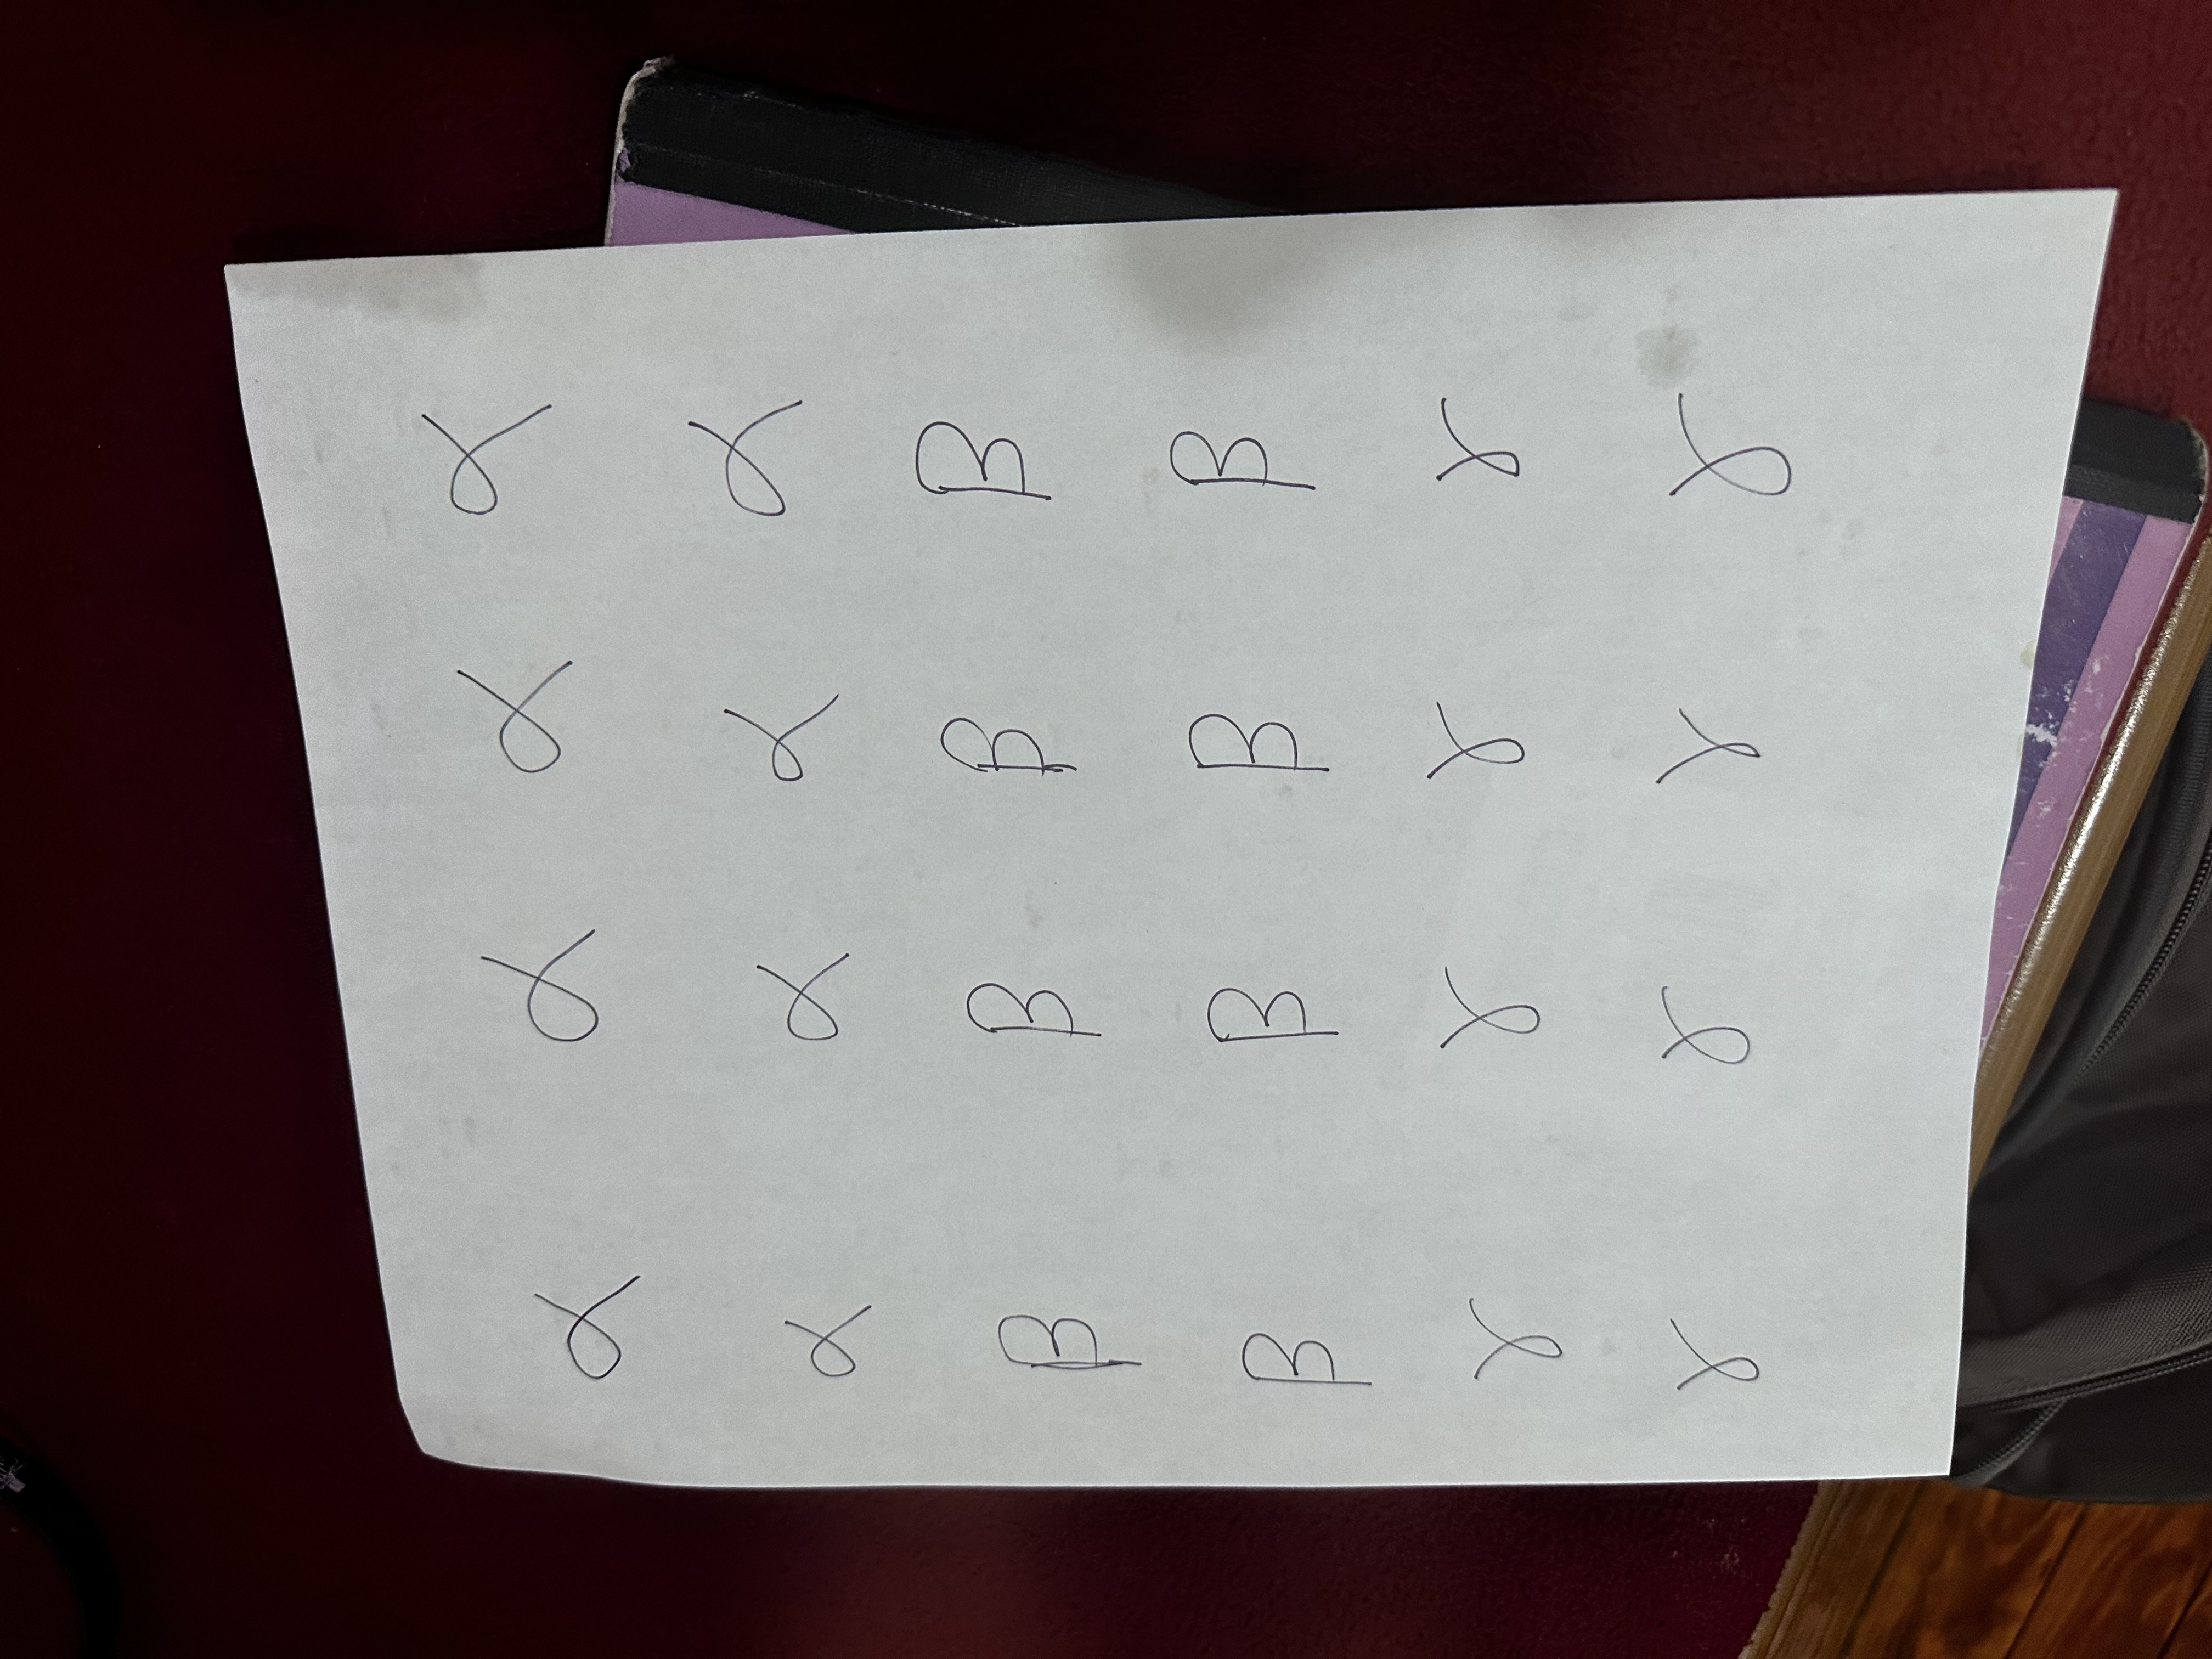 α α α α
α α α α
β β β β
β β β β
γ γ γ γ
γ γ γ γ